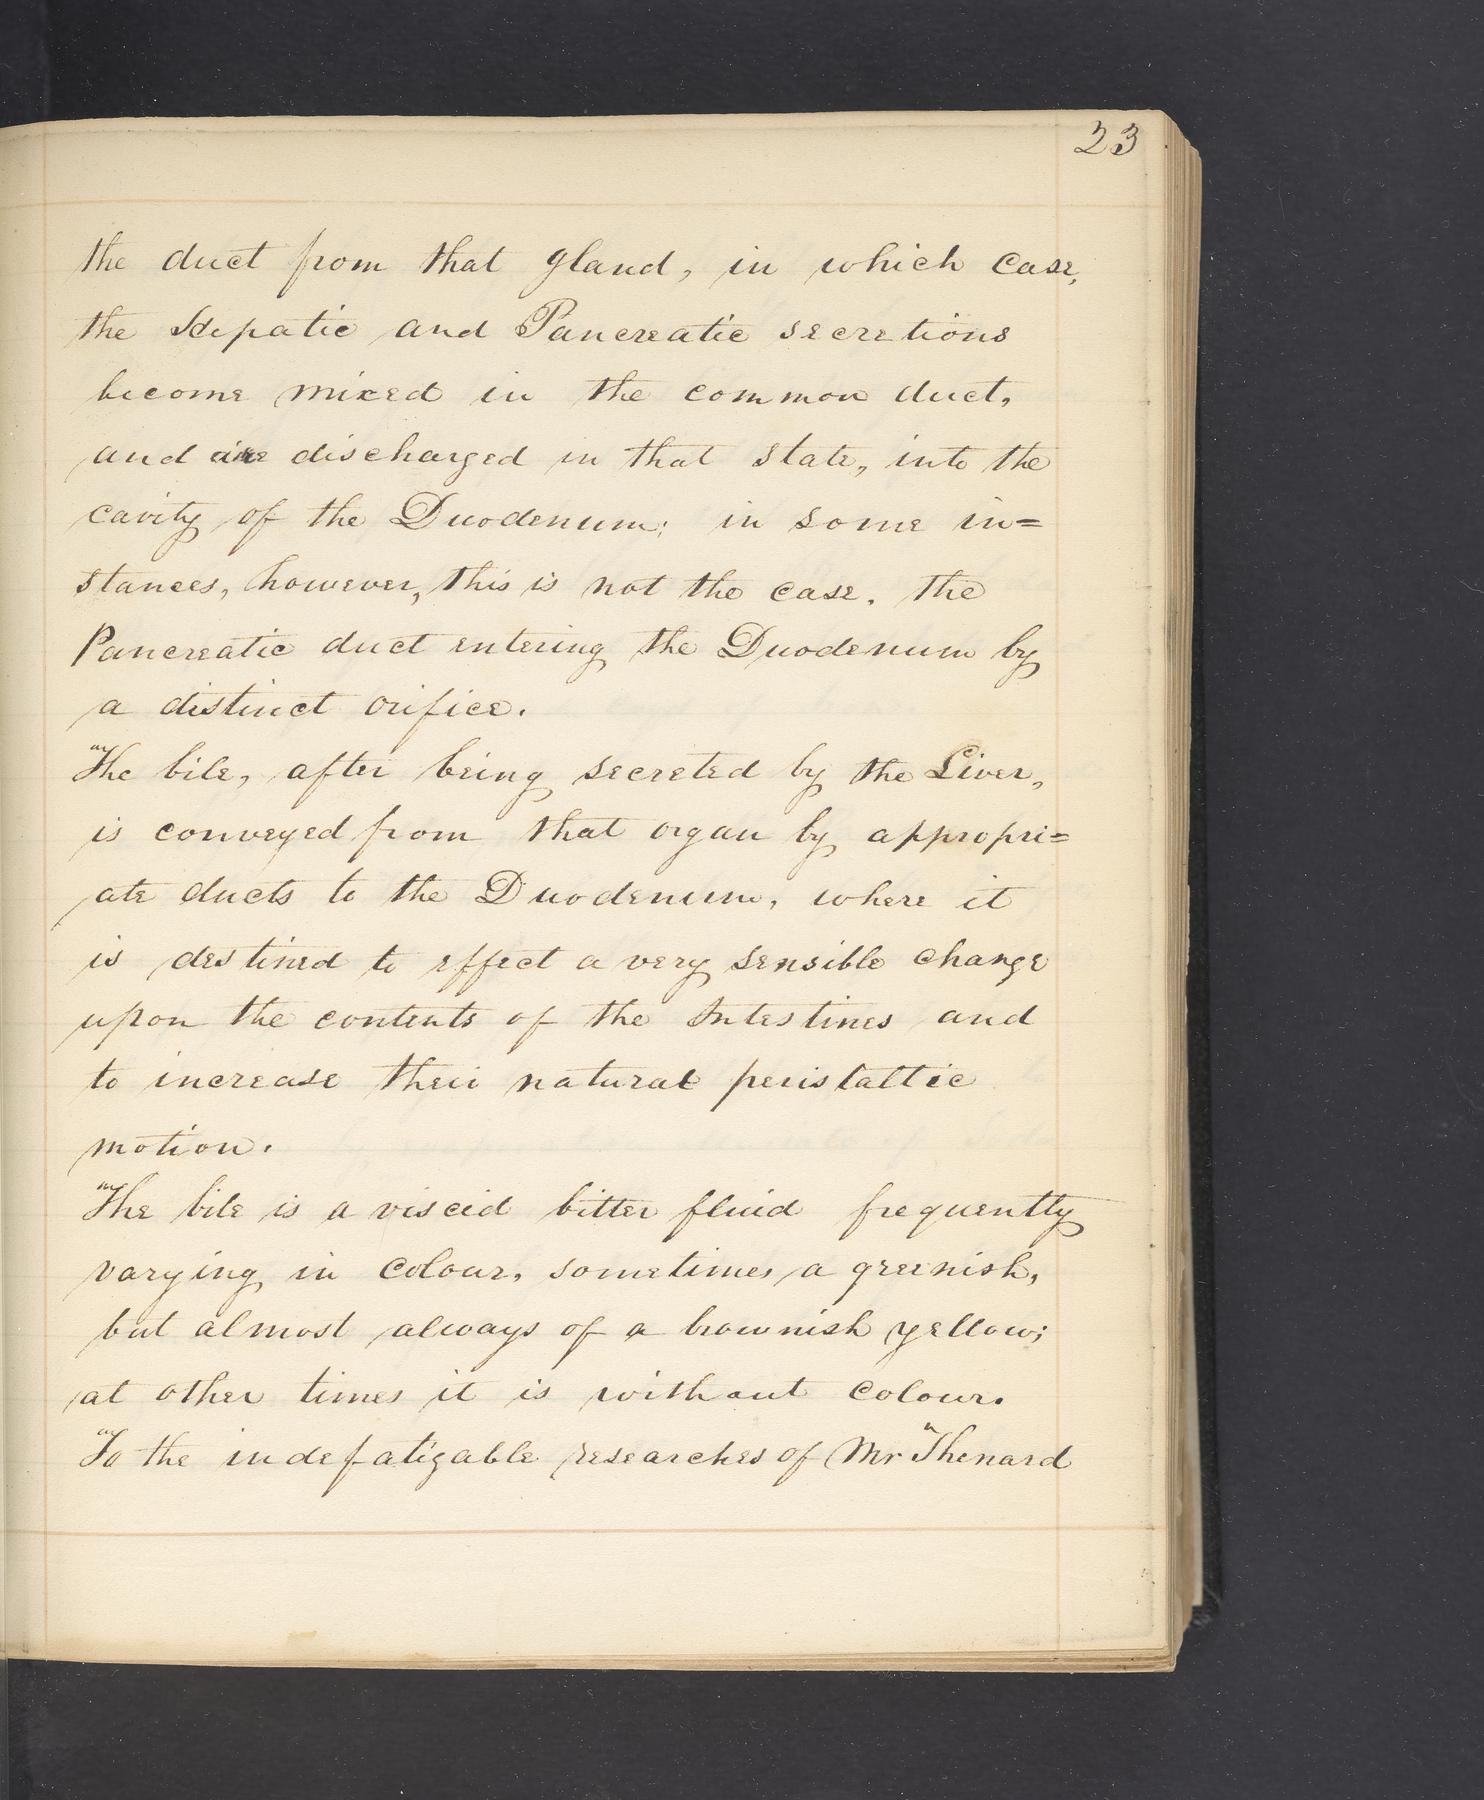 23
the duct from that gland, in which case,
the Hepatic and Pancreatic secretions
become mixed in the common duct,
and are discharged in that state, into the
cavity of the Duodenum; in some in=
stances, however, this is not the case, the
Pancreatic duct entering the Duodenum by
a distinct orifice.
The bile, after being secreted by the Liver,
is conveyed from that organ by appropri=
ate ducts to the Duodenum, where it
is destined to effect a very sensible change
upon the contents of the Intestines and
to increase their natural peristaltic
motion.
The bile is a viscid bitter fluid frequently
varying in colour, sometimes a greenish,
but almost always of a brownish yellow;
at other times it is without colour.
To the indefatigable researches of Mr Thenard